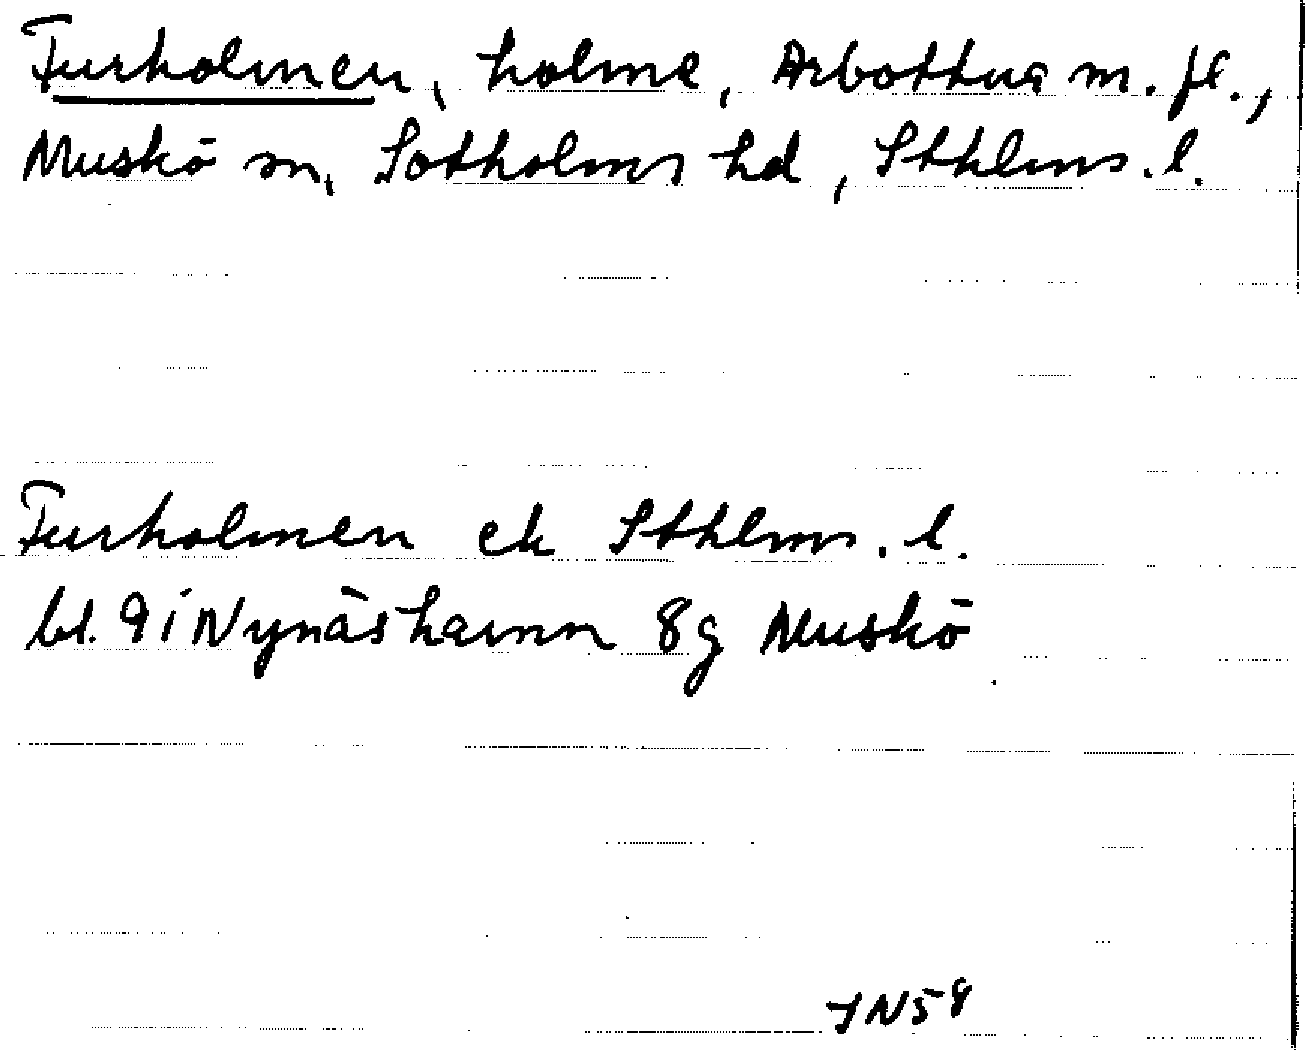 Furholmen, holme, Arbottna m. fl.,
Muskö sn, Sotholms hd, Sthlms. l.
Furholmen ek Sthlms. l.
bl. 9 i Nynäshamn 8g Muskö
JN58